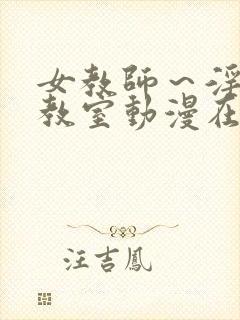 女教師～淫
教室動漫在
汪吉鳳